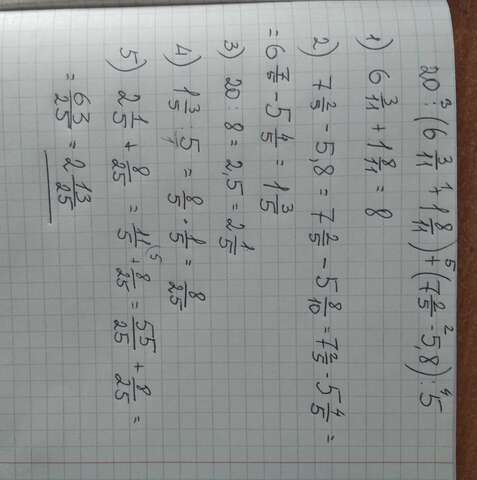 20 :³ (6 3/11 +¹ 1 8/11) +⁵ (7 2/5 -² 5,8) :⁴ 5
1) 6 3/11 + 1 8/11 = 8
2) 7 2/5 - 5,8 = 7 2/5 - 5 8/10 = 7 2/5 - 5 4/5 =
= 6 7/5 - 5 4/5 = 1 3/5
3) 20 : 8 = 2,5 = 2 1/5
4) 1 3/5 : 5/1 = 8/5 · 1/5 = 8/25
5) 2 1/5 + 8/25 = 11/5 ⁽⁵ + 8/25 = 55/25 + 8/25 =
= 63/25 = 2 13/25